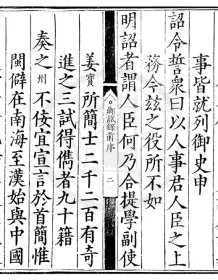 事皆就列御史申
詔令誓衆曰以人事君人臣之上
務今玆之役所不如
明詔者謂人臣何乃合提學副使
鄉試錄前序
二
姜寳所簡士二千二百有奇
進之三試得儁者九十籍
奏之州不佞宜宣言於首簡惟
閩僻在南海至漢始與中國